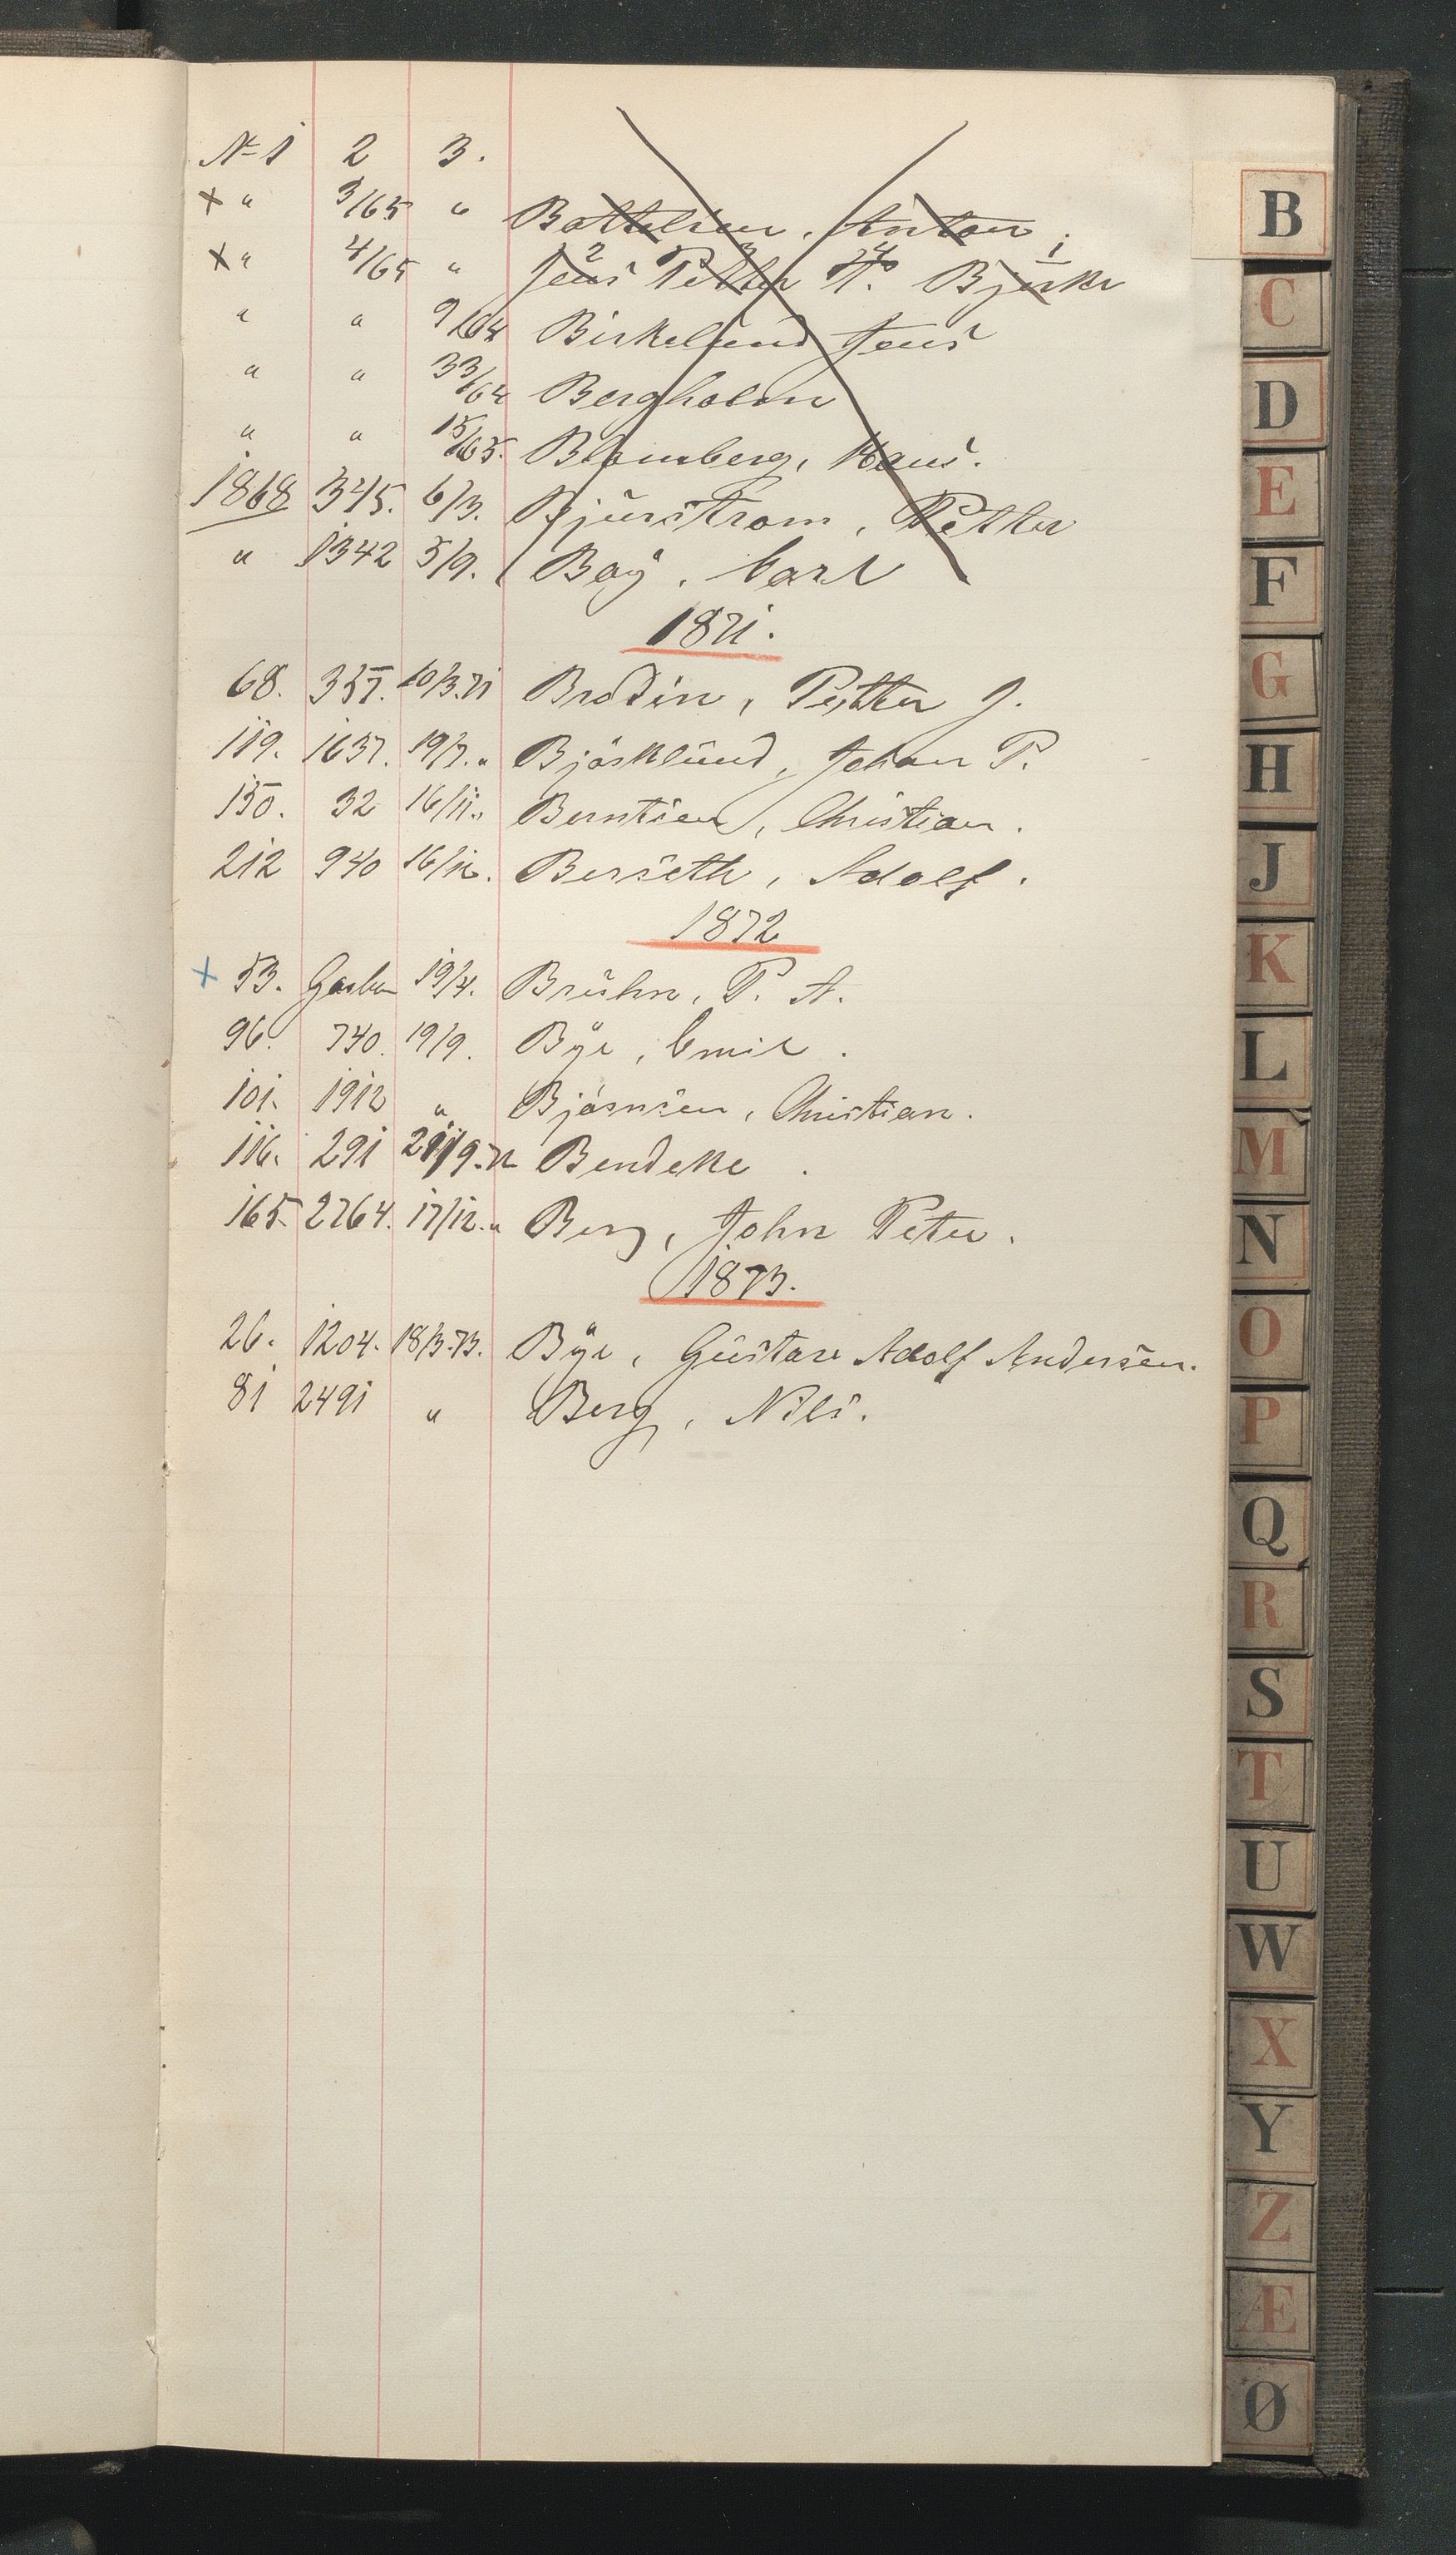 No 1 2 3.
× " 3/65 " Bottelsen, Anton
× " 4/65 " Jens Petter A. Bjerke
2 3 4 1
" " 9/64 Birkelund Jens
" " 33/64 Bergholm
" " 15/65. Blomberg, Hans.
1868 345. 6/3. Bjurstrom, Petter
" 1342 5/9. Boy, Carl
1871.
68. 357. 10/3.71 Brodin, Petter J.
119. 1637. 19/7. " Bjørklund, Johan P.
150. 32 16/11. " Berntsen, Christian.
212 940 16/12. Berseth, Adolf.
1872
+ 53. 19/4. Bruhn, P. A.
96. 740. 19/9. Bÿe, Emil.
101. 1912 " Bjørnsen, Christian.
116. 291 /9.72 Bendeke.
165. 2764. 17/12. " Berg, John Peter.
1873.
26. 1204. 18/3.73. Bÿe, Gustav Adolf Andersen.
81 2491 " Berg, Nils.
B
C
D
E
F
G
H
J
K
L
M
N
O
P
Q
R
S
T
U
W
X
Y
Z
Æ
Ø